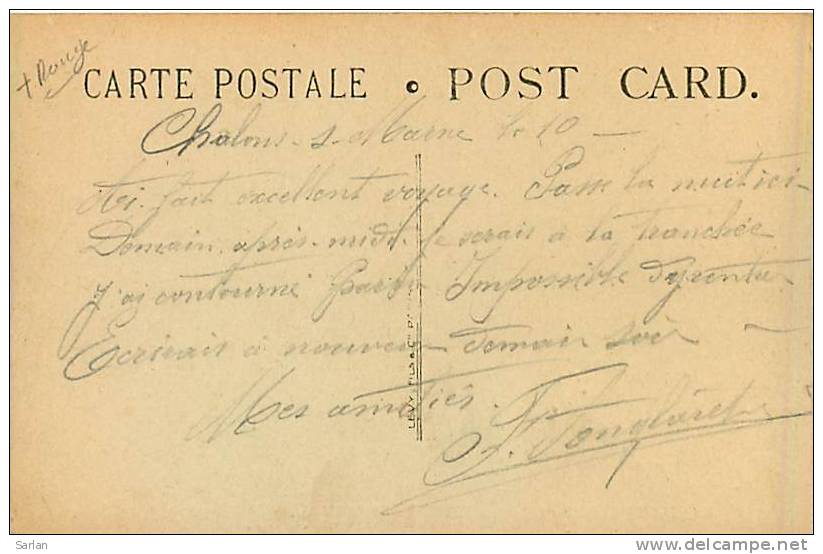 + Rouge
CARTE POSTALE • POST CARD.
Chalons-s-Marne le 10 —
Ai fait excellent voyage. Passe la nuit ici-
Demain après-midi je serais à la tranchée
J'ai contourné Paris. Impossible d'y rentrer
Ecrirais à nouveau demain soir —
Mes amitiés.
LEVY FILS & C
Sarlan
www.delcampe.net